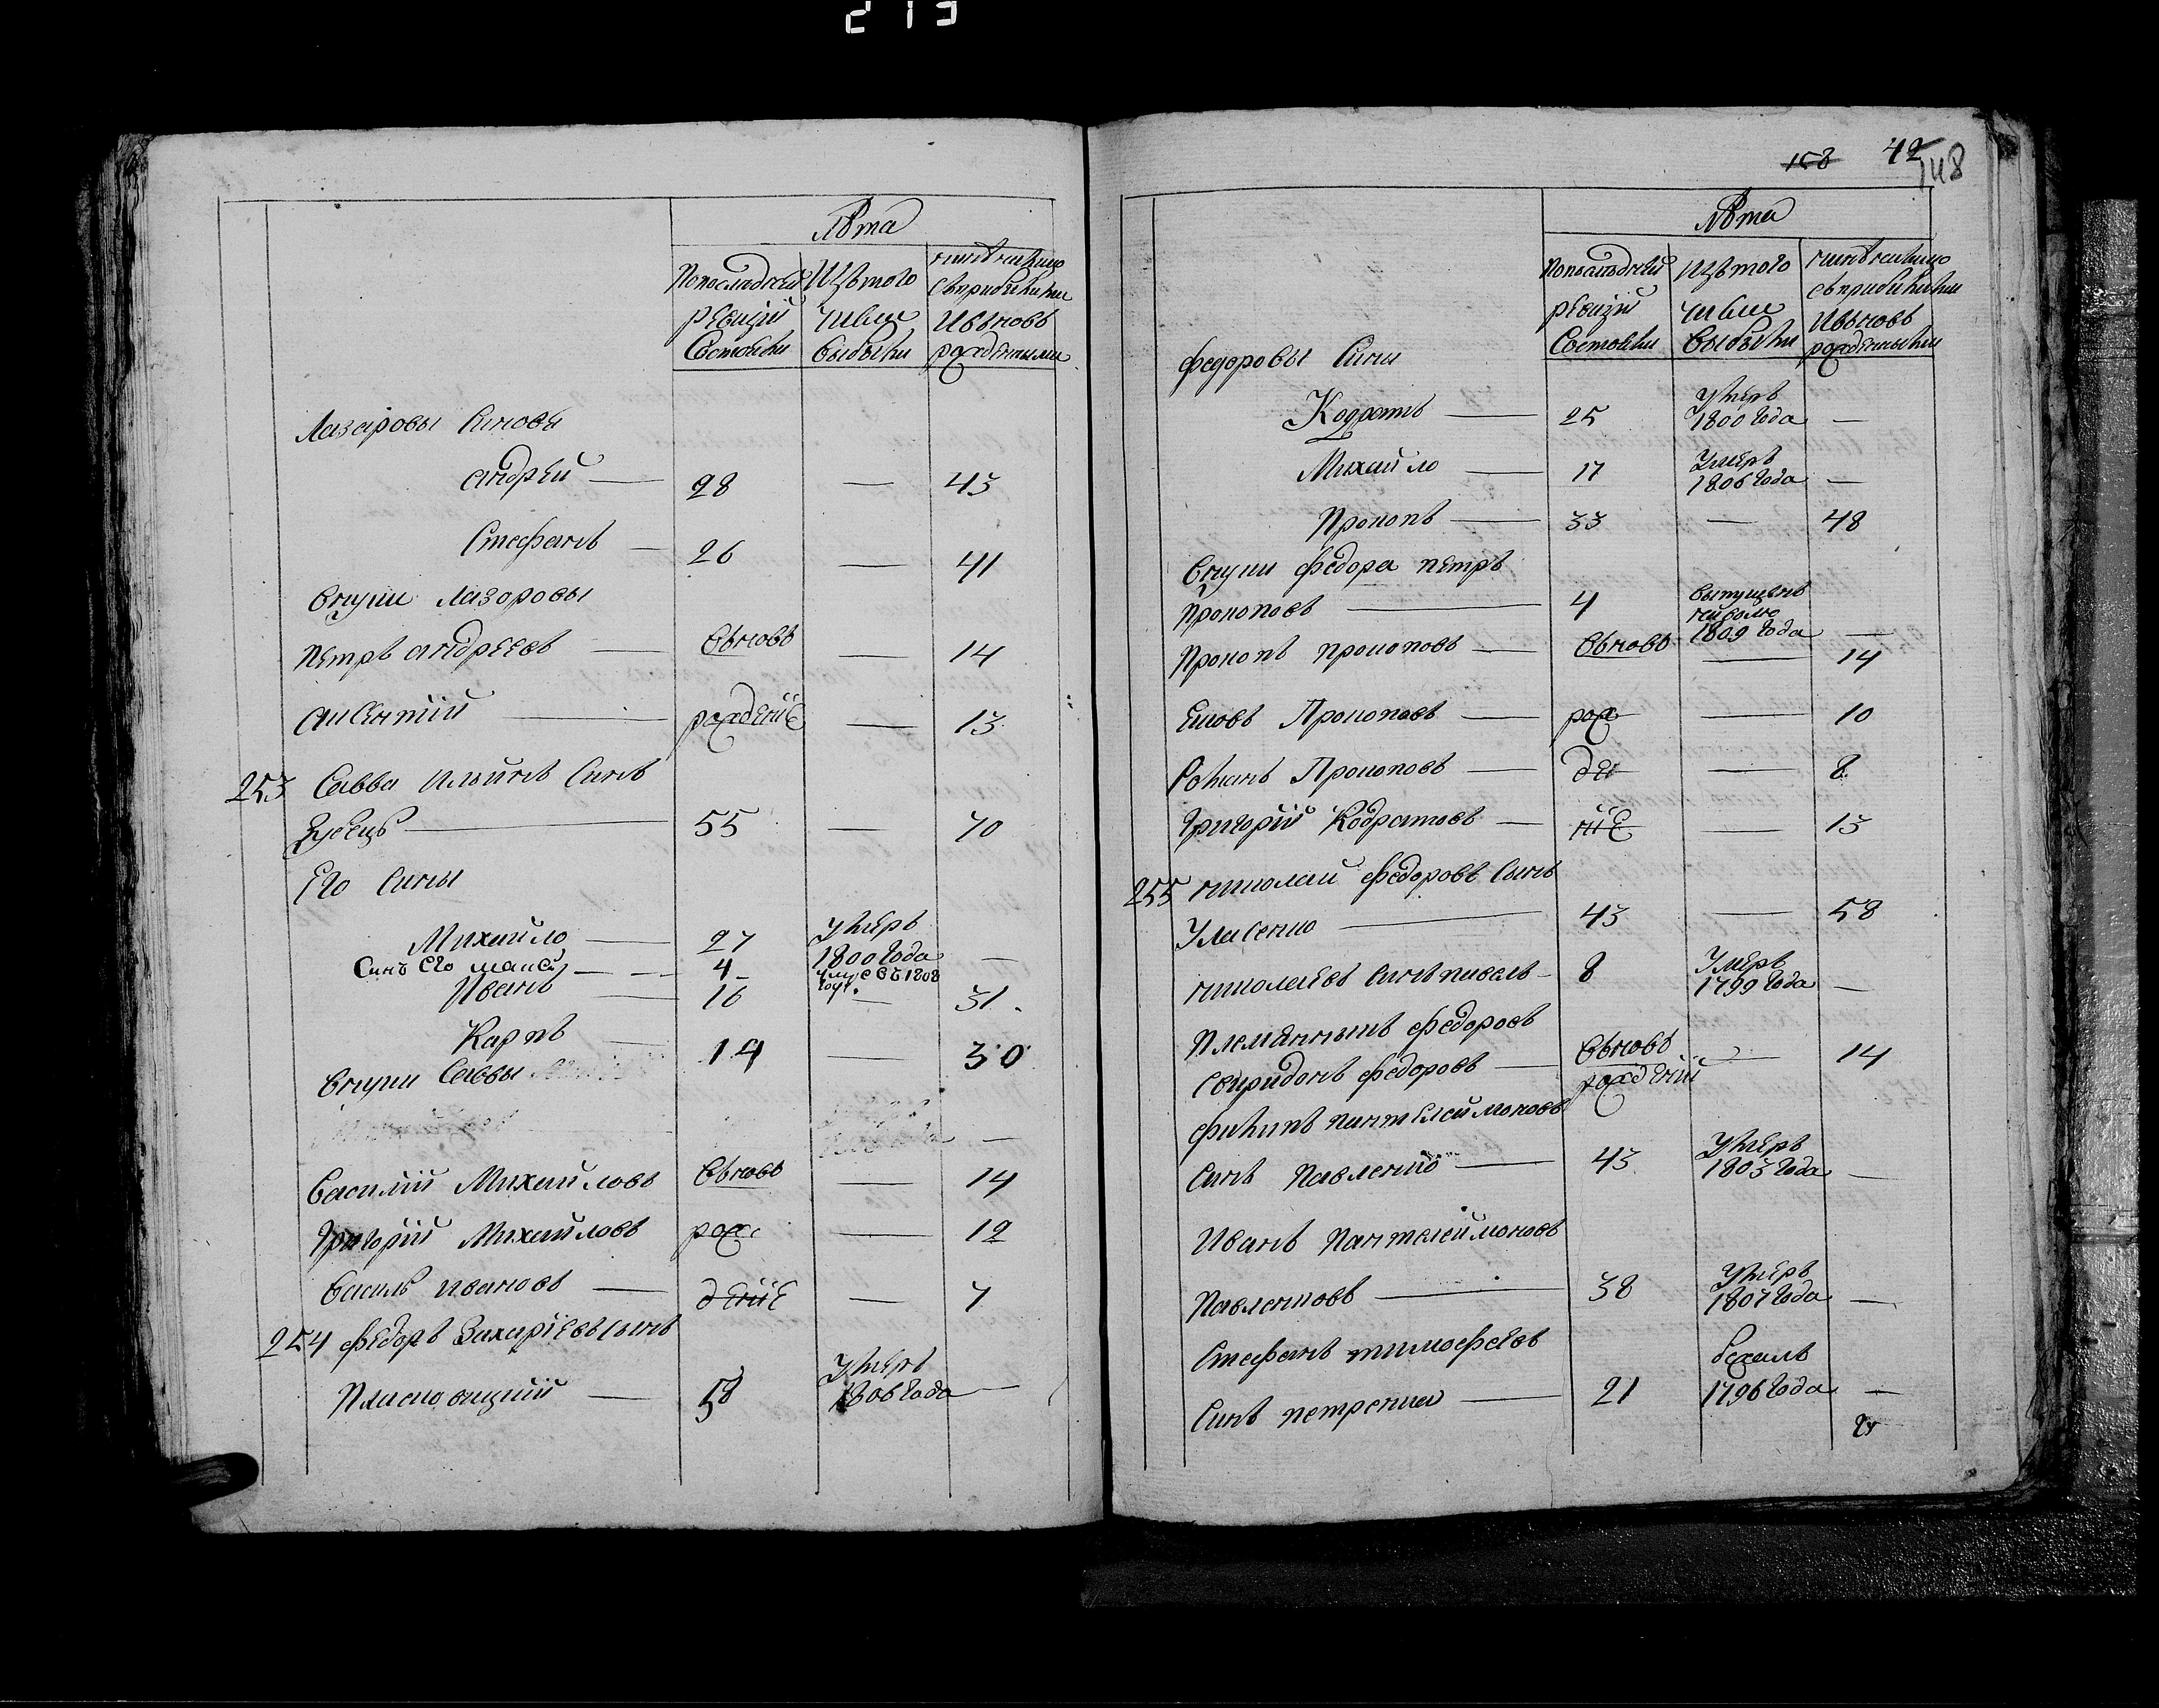 213
Лѣта
Попоследней
ревизіи
Состояли
Исъ того
числа
выбыли
нинѣ налицо
съприбилыми
ивъновъ
рожденными
Лазаровы Синовя
андрей — 28 — 43
Стефанъ — 26 — 41
внуки Лазоровы
петръ андреевъ — въновъ — 14
авксентій — рожденіе — 13
253 Савва ильинъ Синъ
55 — 70
Его Сины
Михайло — 27 умеръ 1800 года —
Синъ его 4
Иванъ — 16 — 31
Карпъ — 14 — 30
внуки Саввы
василій Михайловъ въновъ — 14
григорій Михайловъ рож — 12
василь ивановъ — деніе — 7
254 федоръ Захаріевъ сынъ
— 58 умеръ 1806 года —
158 42
148
Лѣта
Попоследней
ревизіи
Состояли
Исъ того
числа
выбыли
нинѣ налицо
съприбилыми
ивъновъ
рожденными
федоровы Сини
Кодратъ — 25 умеръ 1800 года —
Михайло — 17 умеръ 1806 года —
Прокопъ — 33 — 48
внуки федора петръ
прокоповъ — 4 выпущенъ наволю 1809 года —
прокопъ прокоповъ — въновъ — 14
Яковъ Прокоповъ — рож — 10
Романъ Прокоповъ — де — 8
григорій Кодратовъ — ніе — 13
255 николай федоровъ Сынъ
Уласенко — 43 — 58
николаевъ Синъ павелъ — 8 умеръ 1799 года —
племянникъ федоровъ
Свиридонъ федоровъ — въновъ рожденій — 14
филипъ пантелеймоновъ
Синъ павленко — 43 умеръ 1803 года —
Иванъ пантелеймоновъ
павленковъ — 38 умеръ 1807 года —
Стефанъ тимофеевъ
Синъ петренка — 21 бежалъ 1796 года —